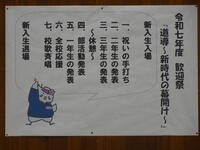 令和七年度 歓迎祭
「道導～新時代の幕開け～」
新入生入場
一、祝いの手打ち
二、二年生の発表
三、三年生の発表
～休憩～
四、部活動発表
五、一年生の発表
六、全校応援
七、校歌斉唱
新入生退場